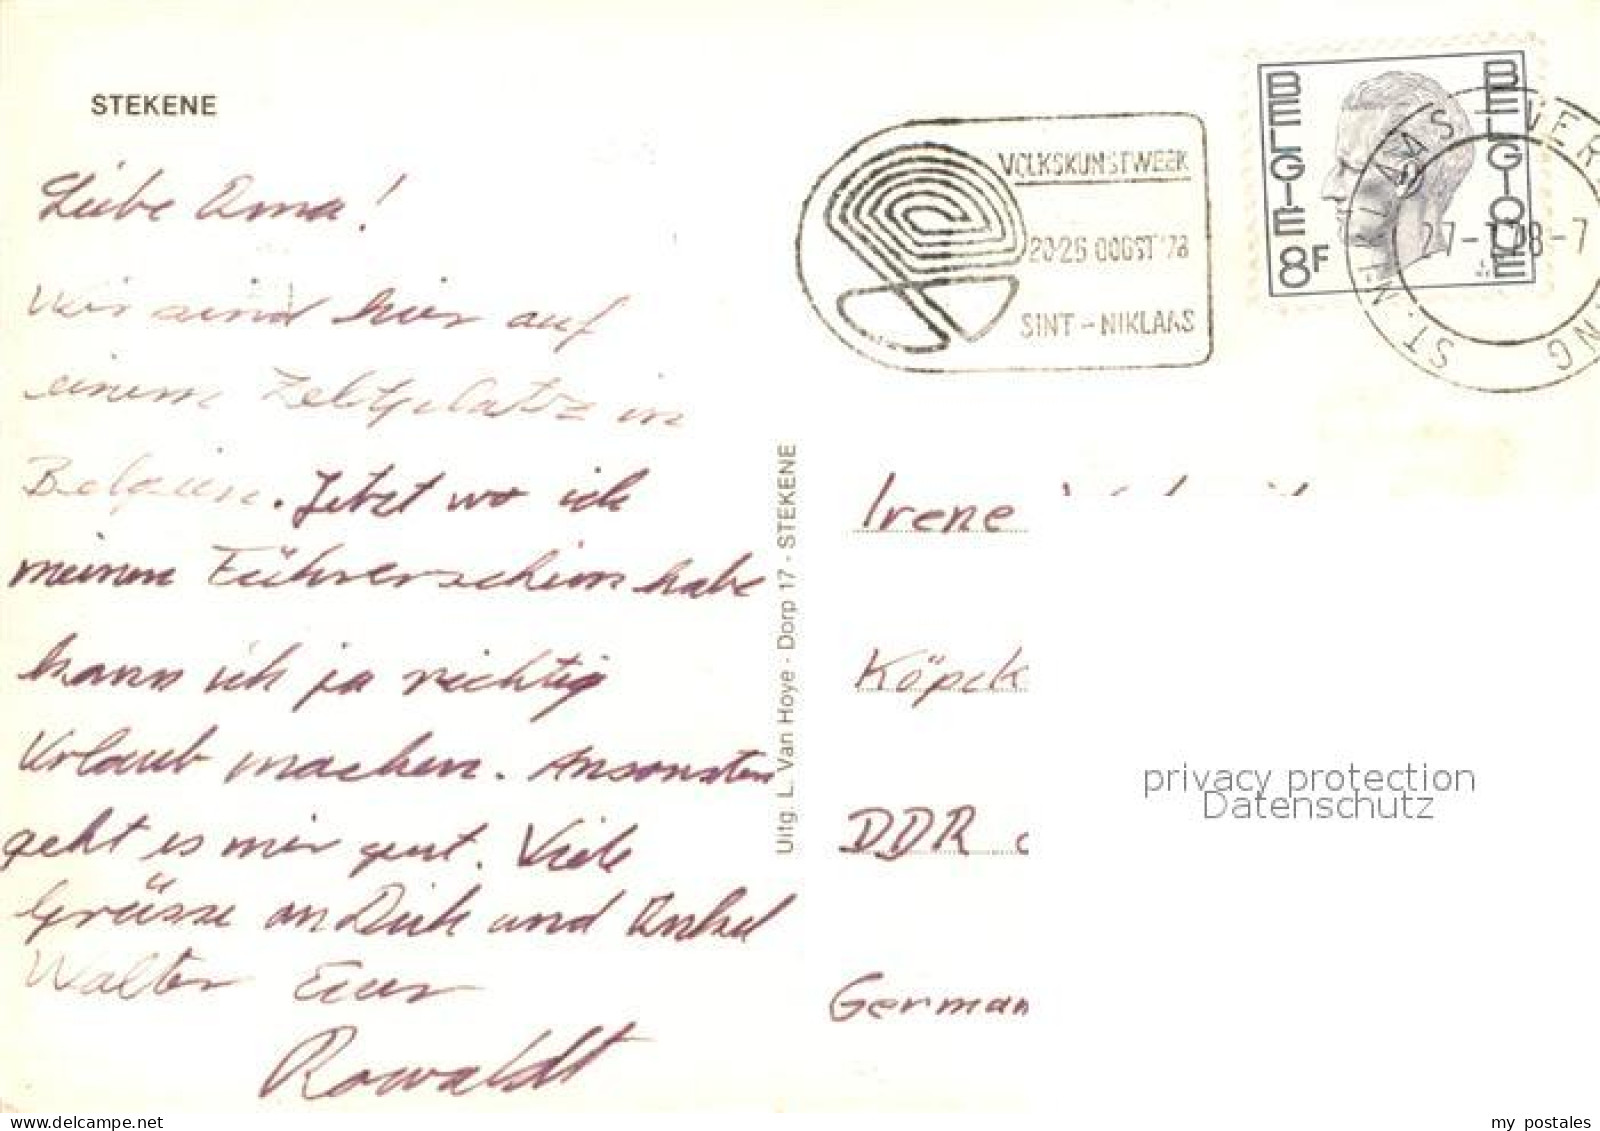 STEKENE
Liebe Oma!
Wir sind hier auf
einem Zeltplatz in
Belgien. Jetzt wo ich
meinen Führerschein habe
kann ich ja richtig
Urlaub machen. Ansonsten
geht es mir gut. Viele
Grüsse an Dich und Onkel
Walter Euer
Rowaldt
Uitg. L. Van Hoye - Dorp 17 - STEKENE
VOLKSKUNSTWEEK
20-26 OOGST '78
SINT - NIKLAAS
BELGIË
8F
BELGIQUE
ST. NIKLAAS
Irene
Köpck
DDR
German
privacy protection
Datenschutz
delcampe.net
my_postales